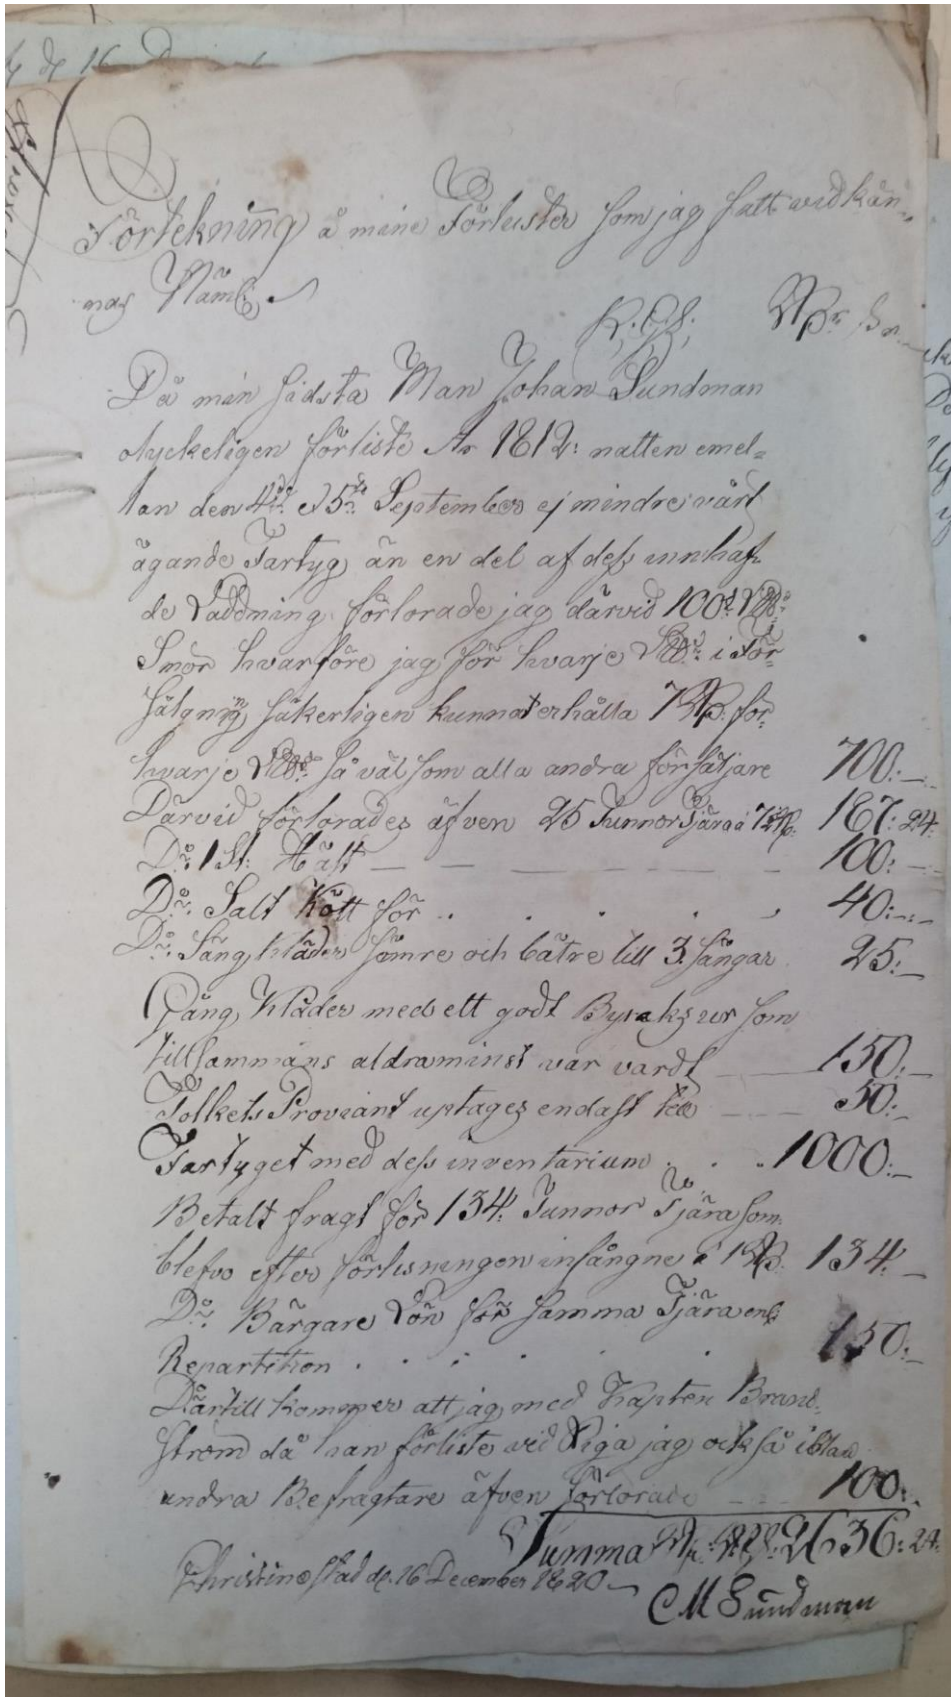 Förtekning å mine Förluster som jag fått widkän-
nas Nämn:
R:G:S: Rp:r
Då min sidsta Man Johan Sundman
olyckeligen förliste År 1812: natten emel=
lan den 4de & 5te September ej mindre vårt
ägande Fartyg än en del af dess innhaf-
de Laddning förlorade jag därvid 100 L℔:
Smör hvarföre jag för hvarje L℔: i För-
sälgning säkerligen kunnat erhålla 7 Rp: för
hvarje L℔: så väl som alla andra försäljare 700:-
Därvid förlorades äfven 25 Tunnor Tjära á 7½ Rp: 187: 24.
Do: 1 St: Häst — — — — — 100:-
Do: Salt Kött för . . . . . 40:-
Do: Säng Kläder sämre och bätre till 3 sängar 25:-
Gång Kläder med ett godt Byraks ur som
tillsammans aldraminst var vardt 150:-
Folkets Proviant uptages endast till 50:-
Fartyget med dess inventarium . . . 1000:-
Betalt fragt för 134: Tunnor Tjära som
blefvo efter förlisningen infångne á 1 Rp: 134:-
Do: Bärgare Lön för samma Tjära enl:
Repartition . . . . . 150:-
Därtill kommer att jag med Kapten Brand-
ström då han förliste vid Riga jag också ibland
andra Befragtare äfven förlorade — 100:-
Summa Rp: R:G:S: 2636: 24.
Christinestad d. 16 December 1820
C M Sundman